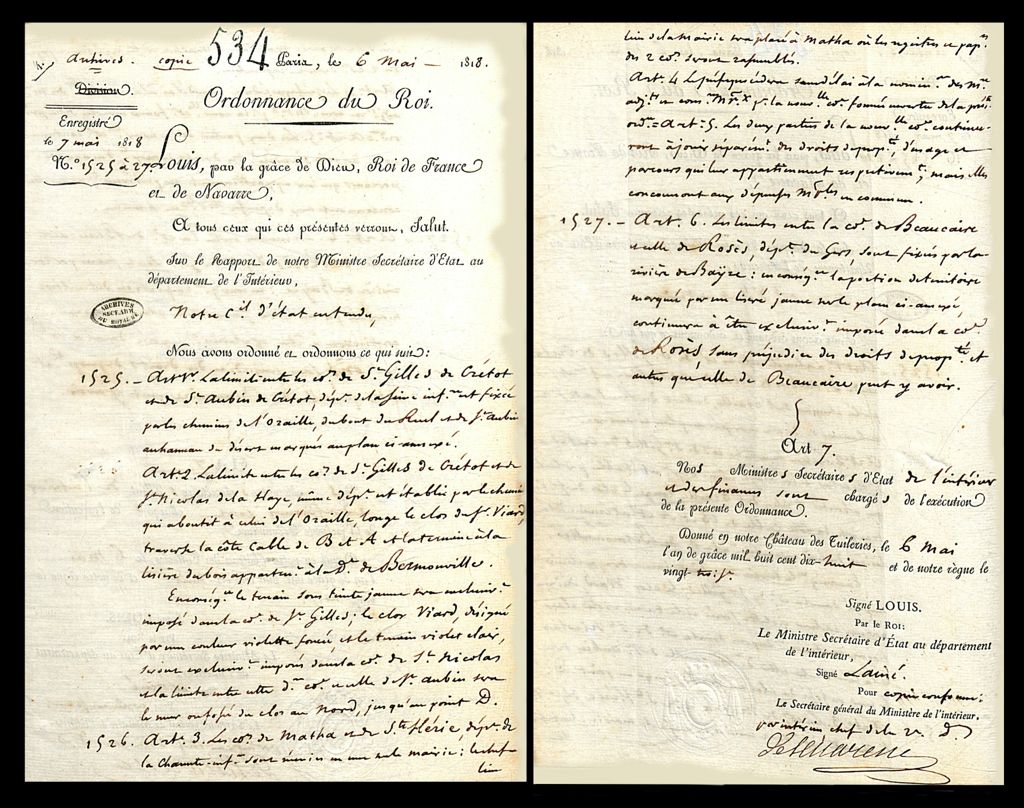 Archives. copie 534 Paris, le 6 Mai 1818.
Division.
Ordonnance du Roi.
Enregistré
le 7 mai 1818
N.º 1525 à 27.
Louis, par la grâce de Dieu, Roi de France
et de Navarre,
A tous ceux qui ces présentes verront, Salut.
Sur le Rapport de notre Ministre Secrétaire d'Etat au
département de l'Intérieur,
ARCHIVES
SECT. ADM
DU ROYAUME
Notre C.il d'état entendu,
Nous avons ordonné et ordonnons ce qui suit:
1525. - Art. 1.er La limite entre les co.es de St. Gilles de Crétot
et de St. Aubin de Crétot, dép.t de la Seine inf.re est fixée
par les chemins de l'Ozaille, du bout du Ruel et de St. Aubin
au hameau du désert marqués au plan ci-annexé.
Art. 2. La limite entre les co.es de St. Gilles de Crétot et de
St. Nicolas de la Haye, même dép.t est établie par le chemin
qui aboutit à celui de l'Ozaille, longe le clos du Sr. Viard,
traverse la côte Calle de B et A et la termine à la
lisière du bois apparten.t à la D.e de Bermonville.
En conség.ce le terrain sous teinte jaune sera exclusiv.t
imposé dans la co.e de St. Gilles; le clos Viard, désigné
par une couleur violette foncée, et le terrain violet clair,
seront exclusiv.t imposés dans la co.e de St. Nicolas
et la limite entre cette d.e co.e et celle de St. Aubin sera
le mur ou fossé du clos au Nord, jusqu'au point D.
1526. Art. 3. Les co.es de Matha et de Ste. Hérie, dép.t de
la Charente-inf.re sont réunies en une seule mairie: le chef
lieu
lieu de la Mairie sera placé à Matha où les registres et pap.rs
des 2 co.es seront rassemblés.
Art. 4. Le préfet procédera sans délai à la nomin.on des m.re
adj.t et cons.rs M.aux p.r la nouv.lle co.e formée en vertu de la prés.te
ord.ce = Art. 5. Les deux parties de la nouv.lle co.e continue-
ront à jouir séparém.t des droits de prop.té, d'usage et
parcours qui leur appartiennent respectivem.t; mais elles
concourront aux dépenses M.ples en commun.
1527. - Art. 6. Les limites entre la co.e de Beaucaire
et celle de Rosès, dép.t du Gers, sont fixées par la
rivière de Bayze: en conség.ce la portion de territoire
marquée par un liseré jaune sur le plan ci-annexé,
continuera à être exclusiv.t imposée dans la co.e
de Rosès, sans préjudice des droits de prop.té et
autres que celle de Beaucaire peut y avoir.
Art 7.
Nos Ministres Secrétaires d'Etat de l'intérieur
et des finances sont chargés de l'exécution
de la présente Ordonnance.
Donné en notre Château des Tuileries, le 6 Mai
l'an de grâce mil huit cent dix-huit et de notre règne le
vingt-trois.e
Signé LOUIS.
Par le Roi:
Le Ministre Secrétaire d'État au département
de l'intérieur,
Signé Lainé.
Pour copie conforme:
Le Secrétaire général du Ministère de l'intérieur,
par intérim chef de la 2.e D.on